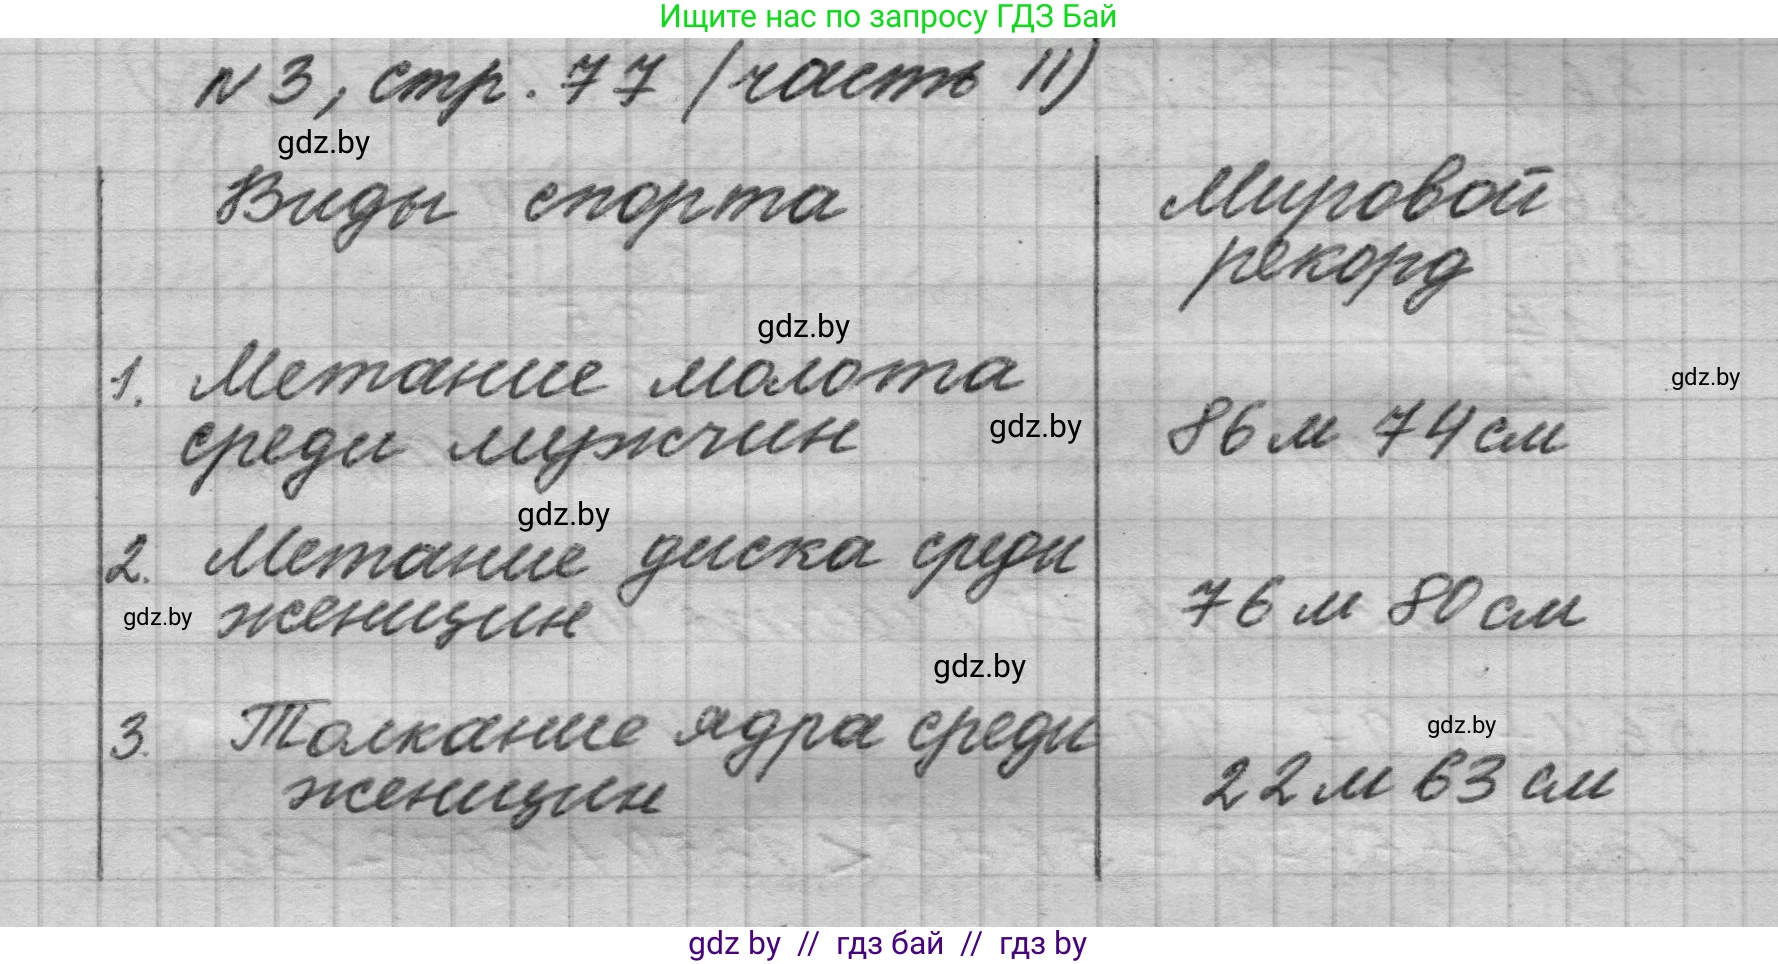 Ищите нас по запросу ГДЗ Бай
N 3, стр. 77 (часть II)
gdz.by
Виды спорта
Мировой
рекорд
gdz.by
1. Метание молота
gdz.by
среди мужчин
gdz.by
86 м 74 см
gdz.by
2. Метание диска среди
gdz.by
женщин
76 м 80 см
gdz.by
3. Толкание ядра среди
gdz.by
женщин
22 м 63 см
gdz by // гдз бай // гдз by